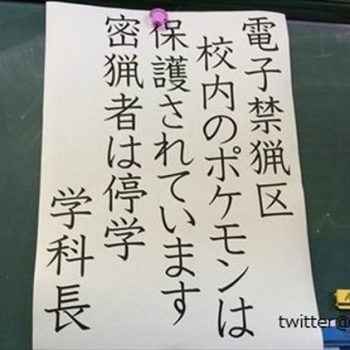 電子禁猟区
校内のポケモンは
保護されています
密猟者は停学
学科長
twitter@